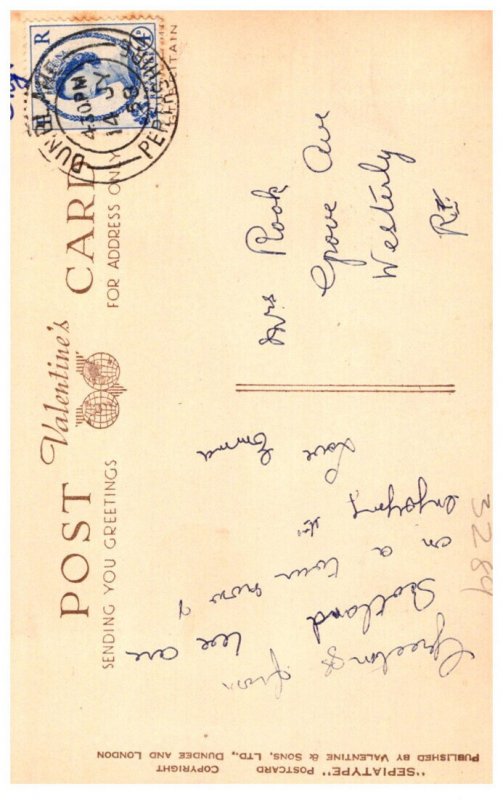 POST Valentine's CARD
SENDING YOU GREETINGS
FOR ADDRESS ONLY
4 30 PM
14 JY
58
Greetings from
Scotland we are
on a tour now &
enjoying it
Love Emma
Mrs Rook
Grove Ave
Westerly
R.I.
3289
"SEPIATYPE" POSTCARD COPYRIGHT
PUBLISHED BY VALENTINE & SONS, LTD., DUNDEE AND LONDON